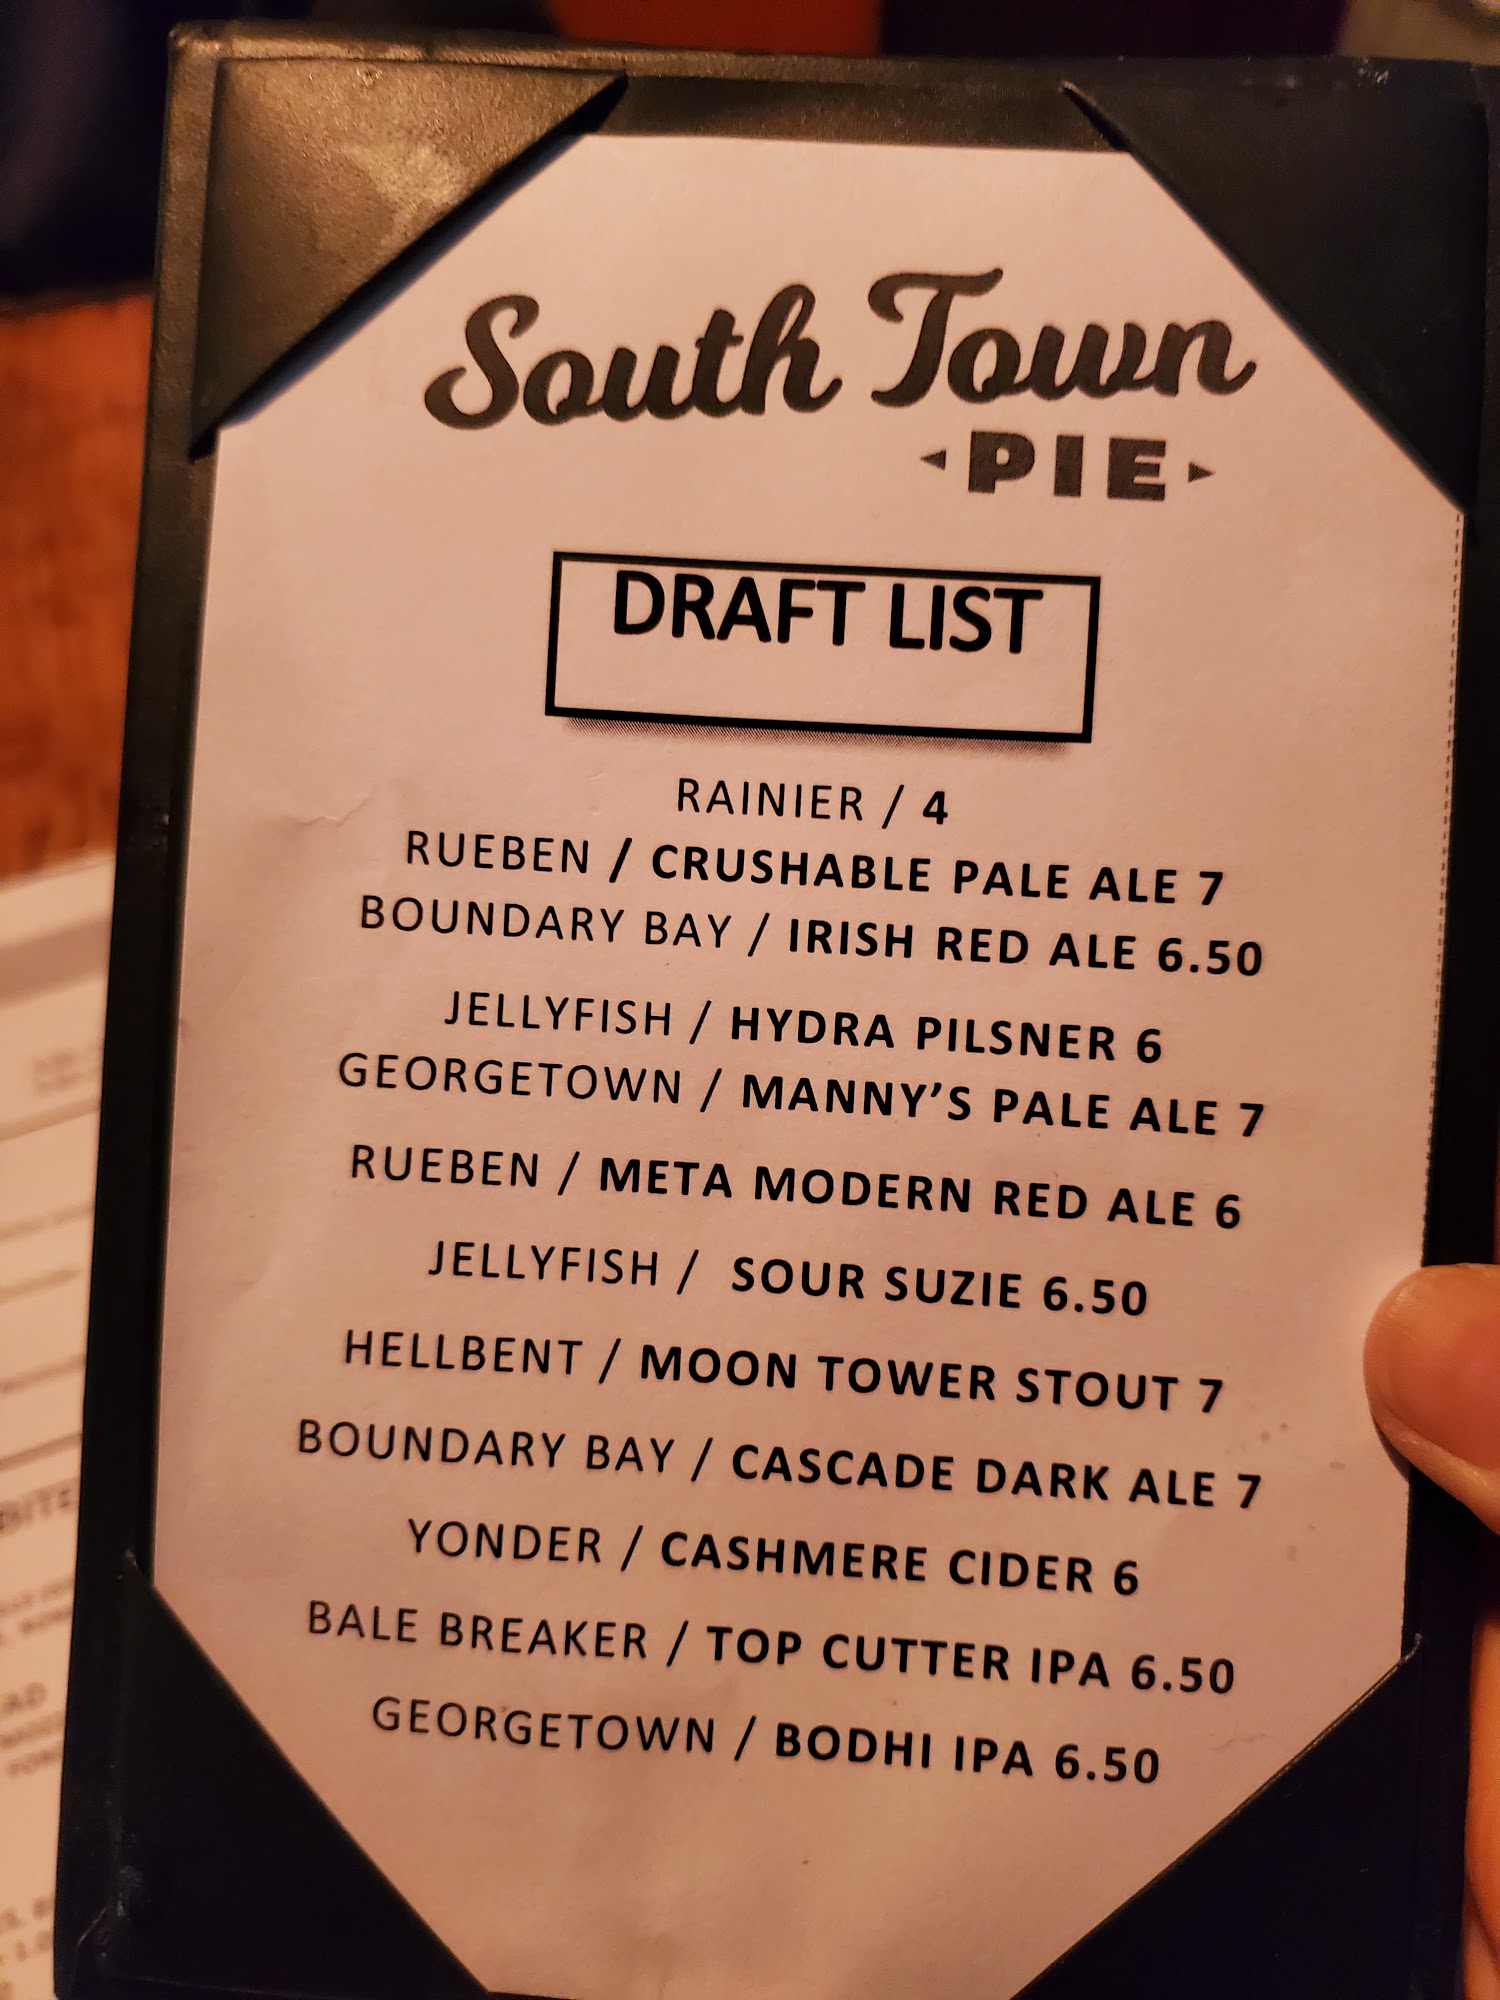 South Town
PIE
DRAFT LIST
RAINIER / 4
RUEBEN / CRUSHABLE PALE ALE 7
BOUNDARY BAY / IRISH RED ALE 6.50
JELLYFISH / HYDRA PILSNER 6
GEORGETOWN / MANNY’S PALE ALE 7
RUEBEN / META MODERN RED ALE 6
JELLYFISH / SOUR SUZIE 6.50
HELLBENT / MOON TOWER STOUT 7
BOUNDARY BAY / CASCADE DARK ALE 7
YONDER / CASHMERE CIDER 6
BALE BREAKER / TOP CUTTER IPA 6.50
GEORGETOWN / BODHI IPA 6.50